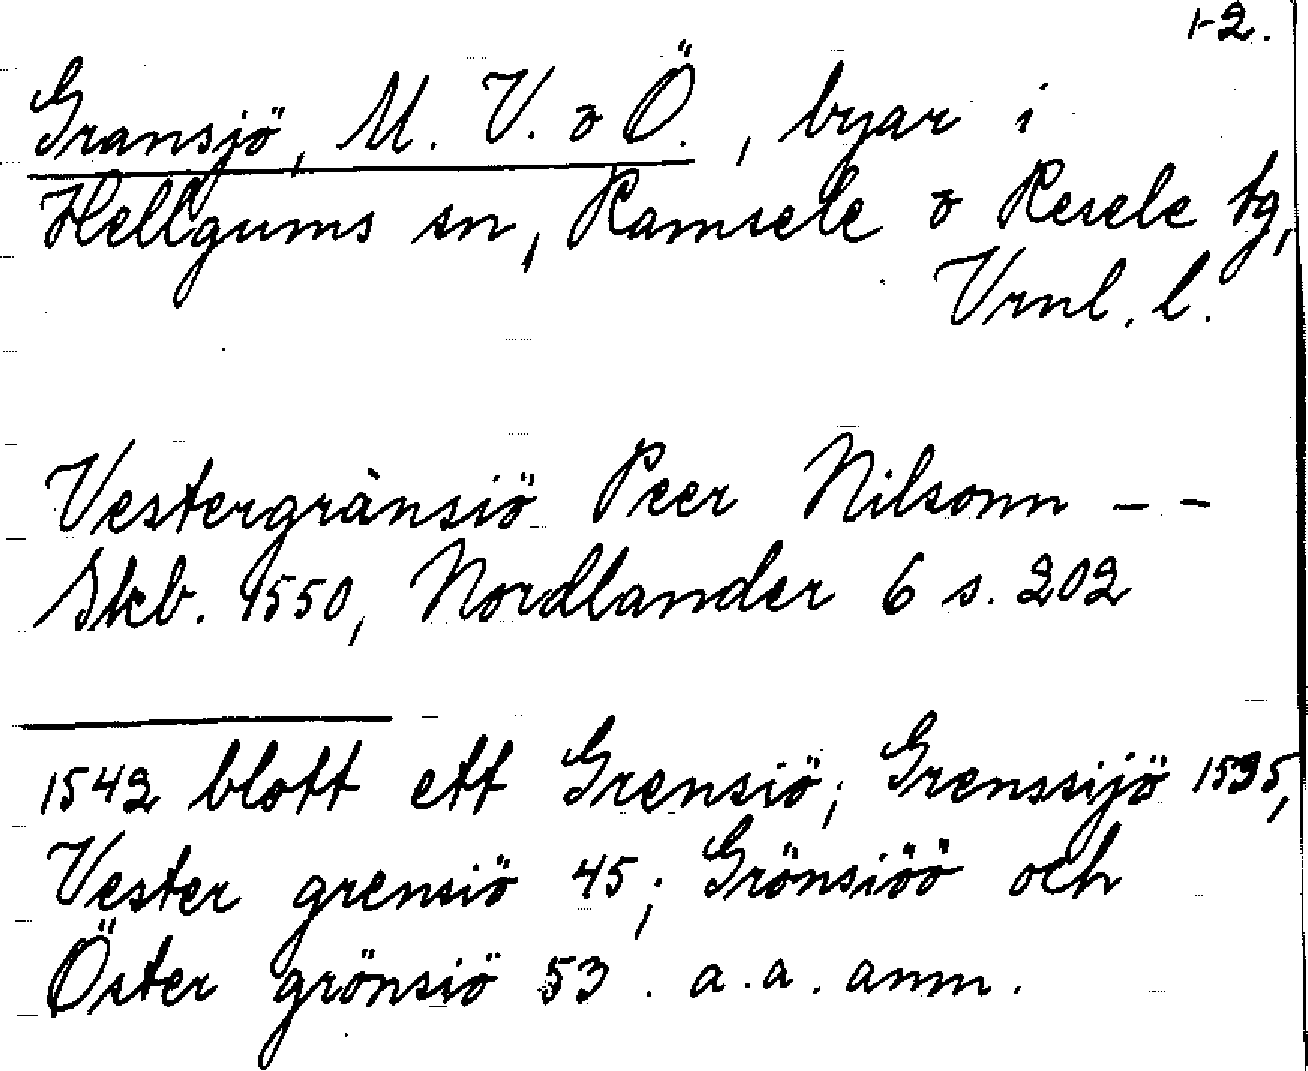 1-2.
Gransjö, M. V. o Ö., byar i
Hellgums sn, Ramsele o Resele tg,
Vrnl. l.
Vestergränsiö Peer Nilsonn - -
Skb. 1550, Nordlander 6 s. 202
1542 blott ett Grensiö; Grenssijö 1535,
Vester grensiö 45; Grönsiöö och
Öster grönsiö 53. a.a. anm.